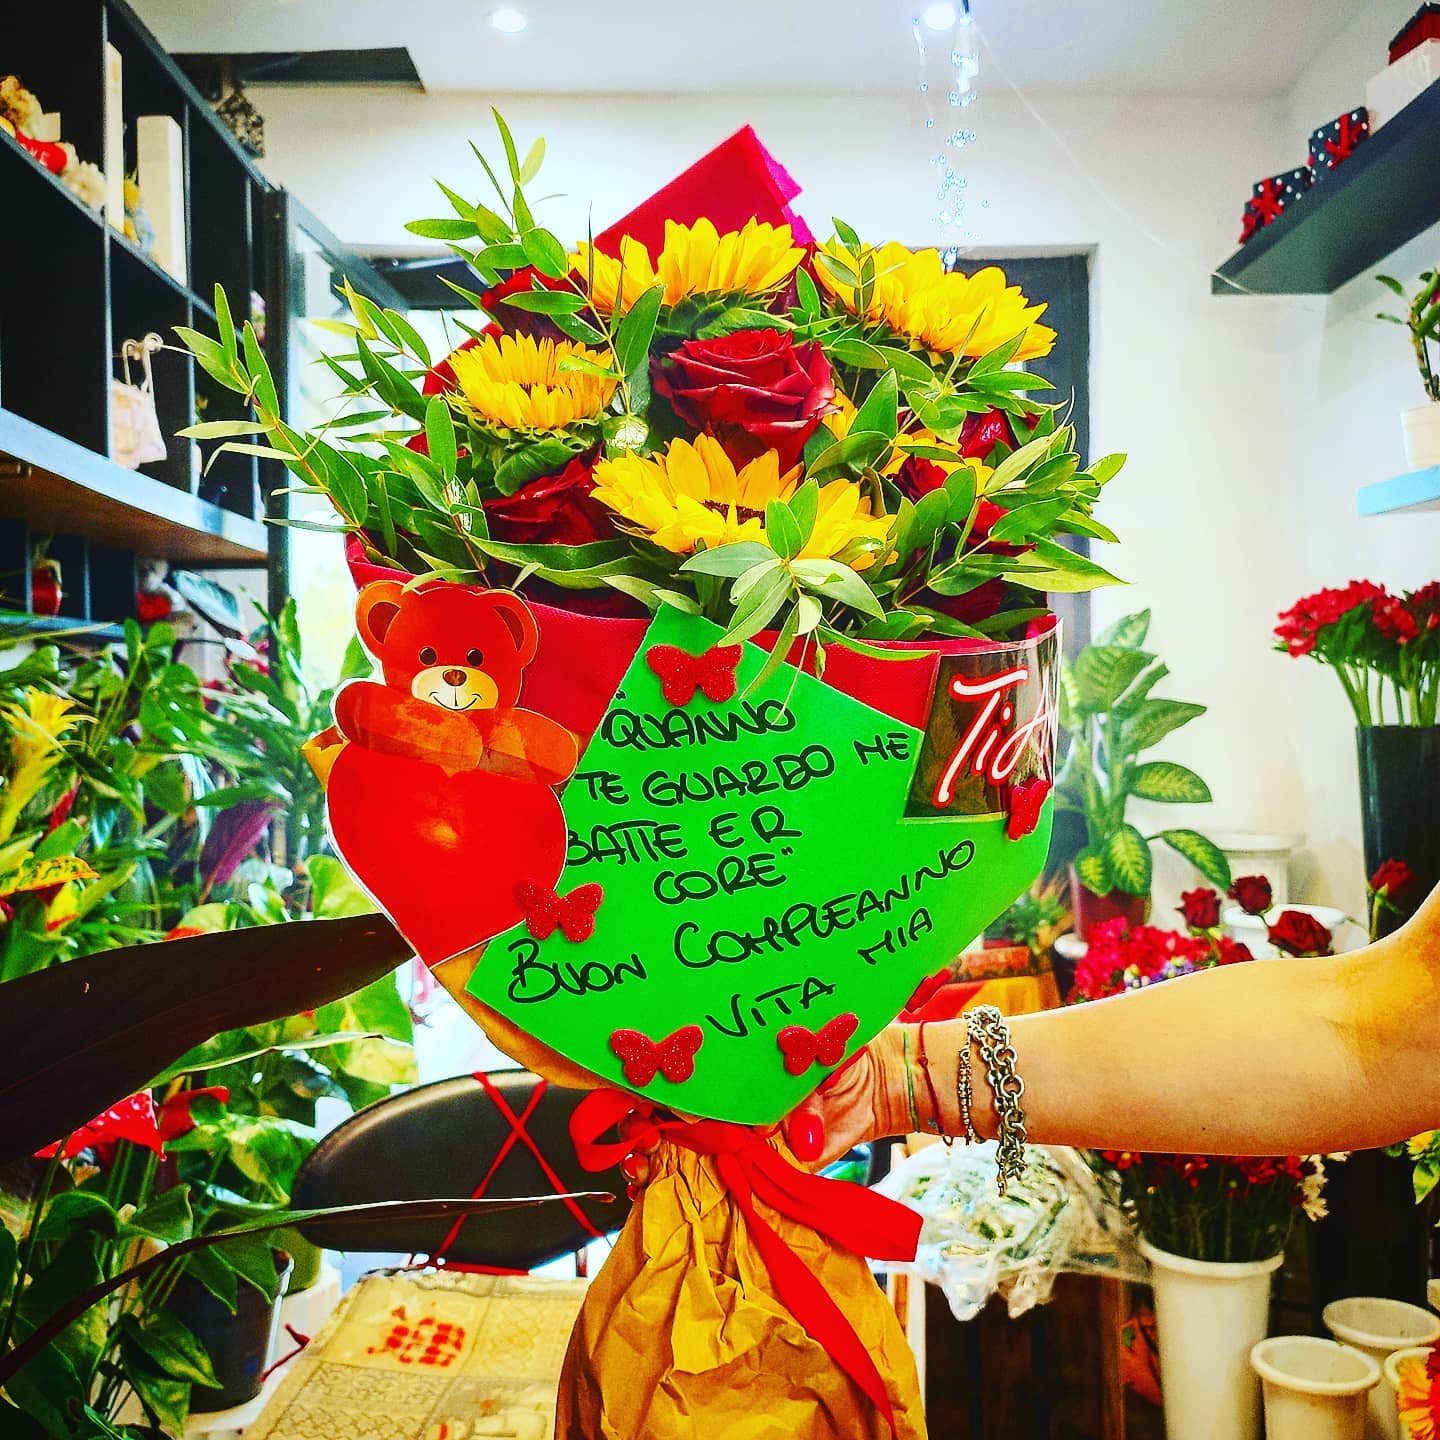 "QUANNO
TE GUARDO ME
BATTE ER
CORE"
BUON COMPLEANNO
VITA MIA
Ti